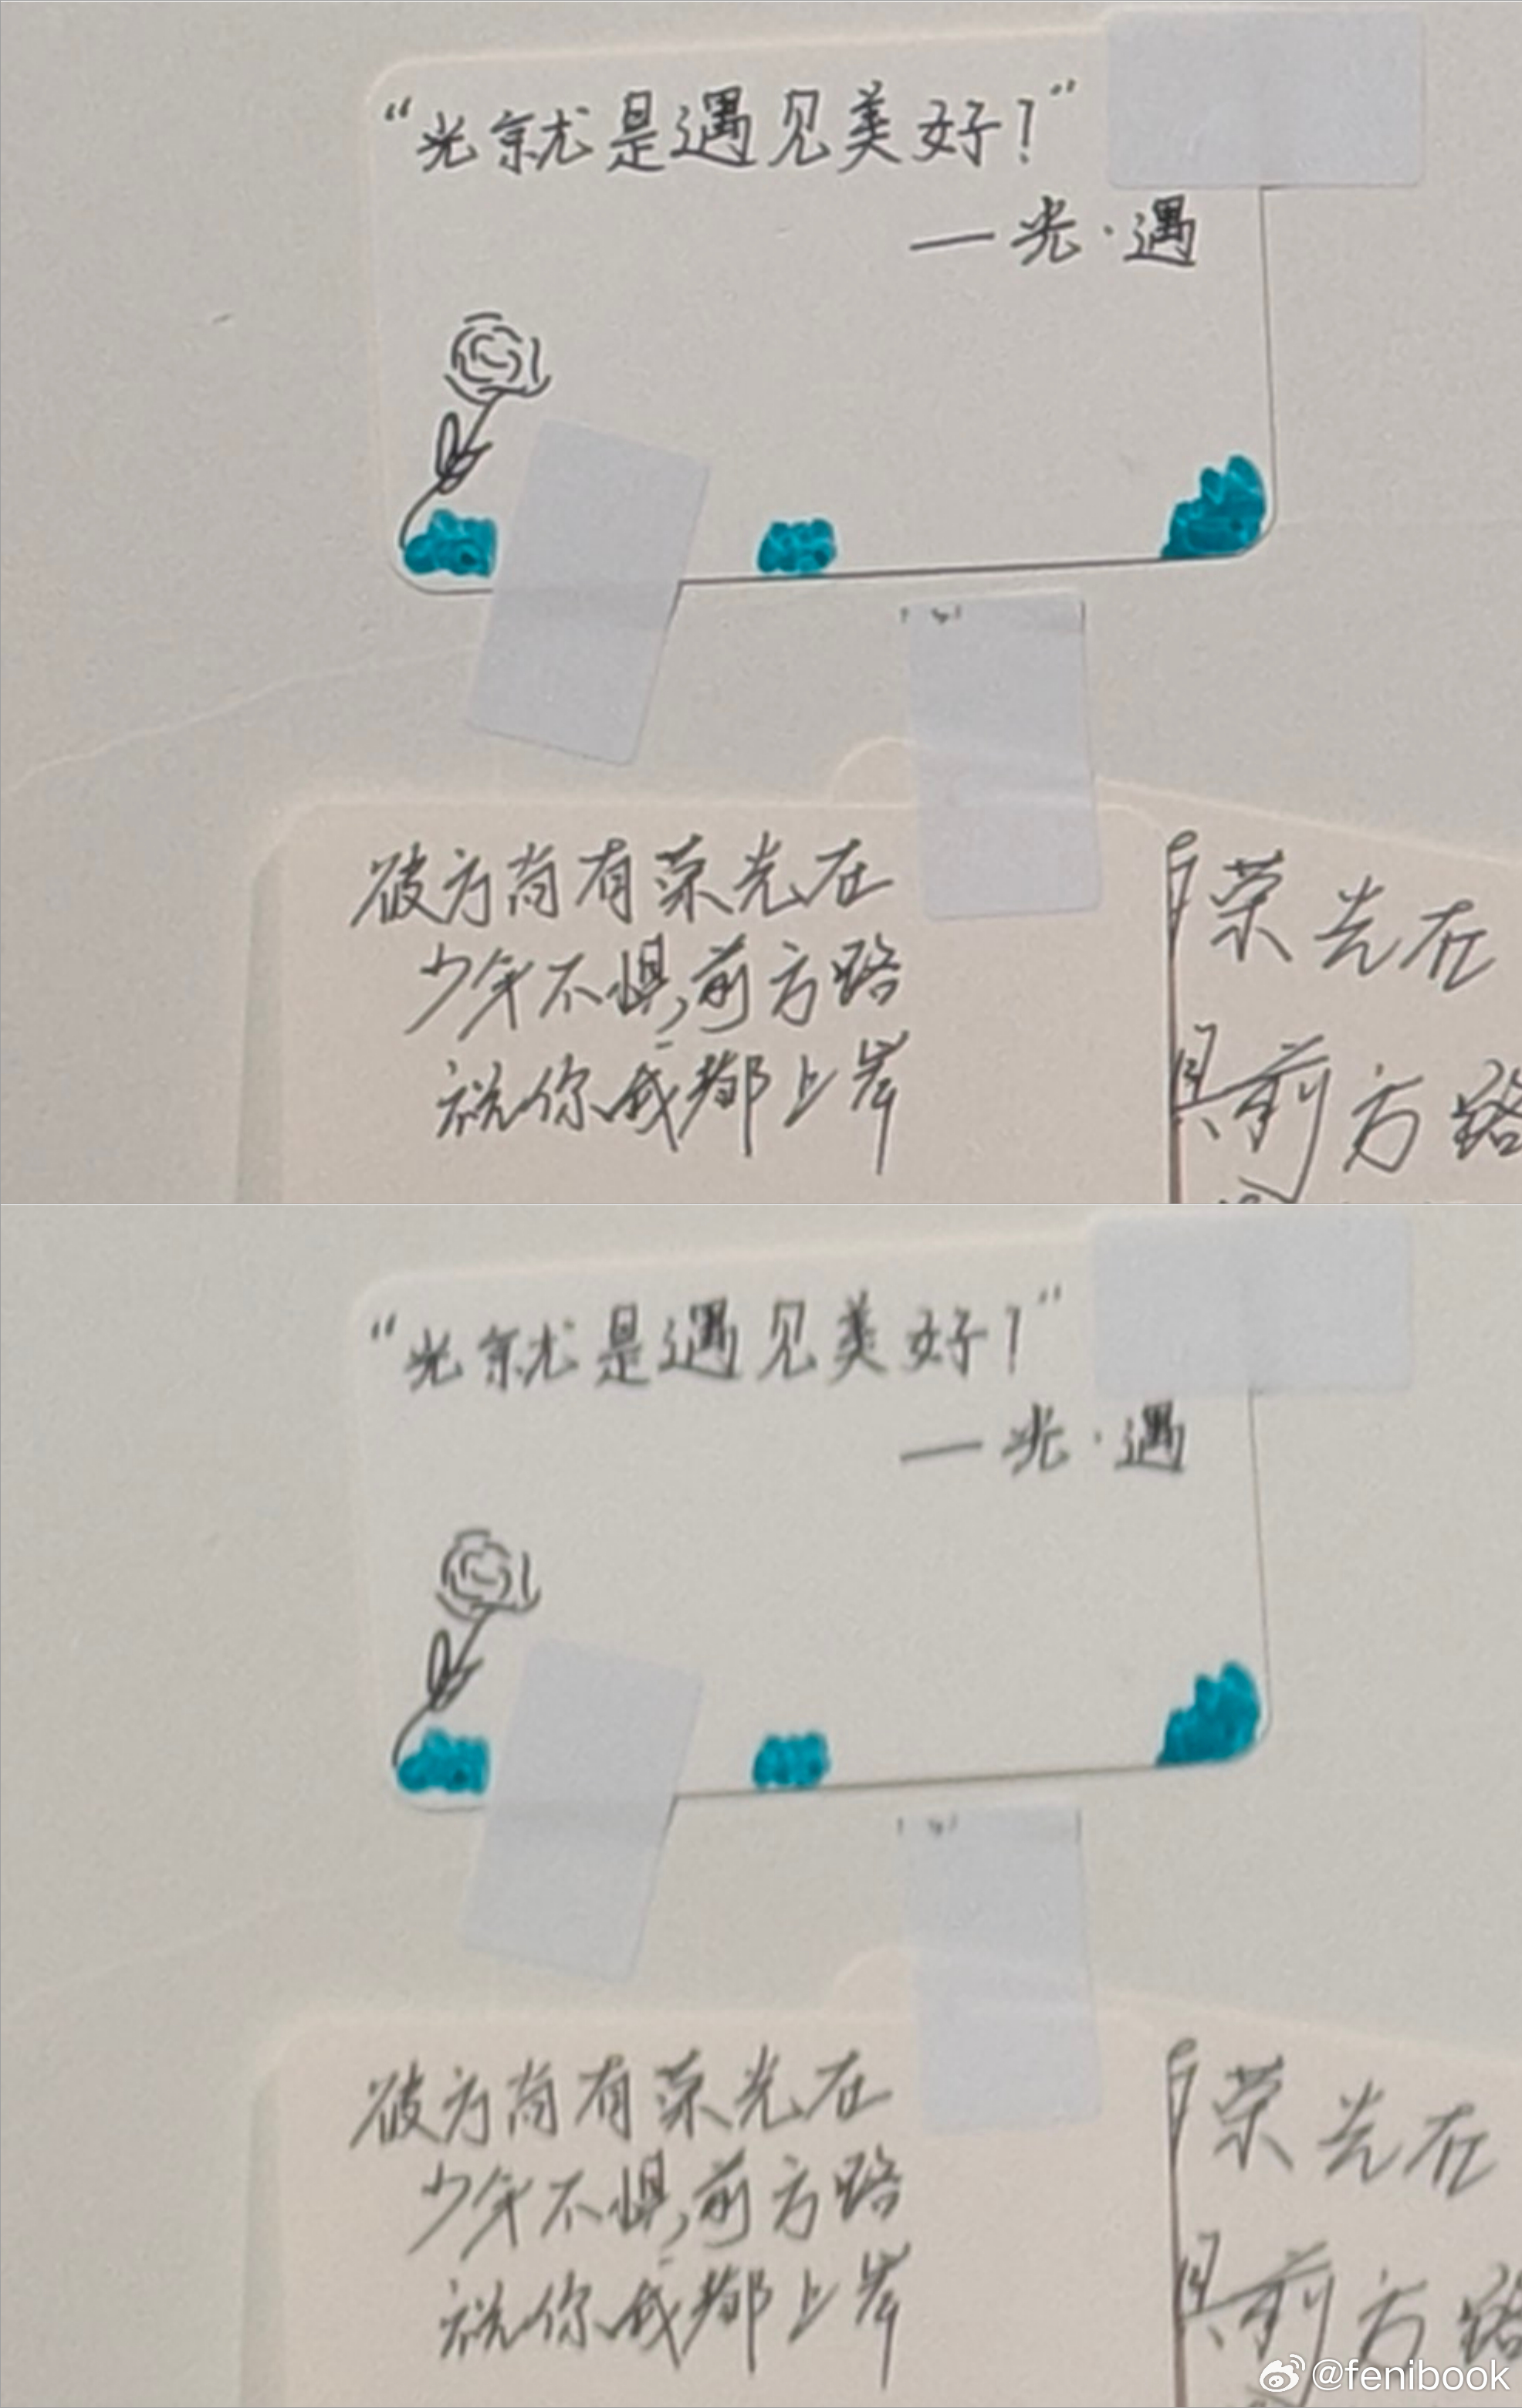 “光就是遇见美好！”
—光·遇
彼方尚有荣光在
少年不惧,前方路
祝你我都上岸
荣光在
惧前方路
“光就是遇见美好！”
—光·遇
彼方尚有荣光在
少年不惧,前方路
祝你我都上岸
荣光在
惧前方路
@fenibook